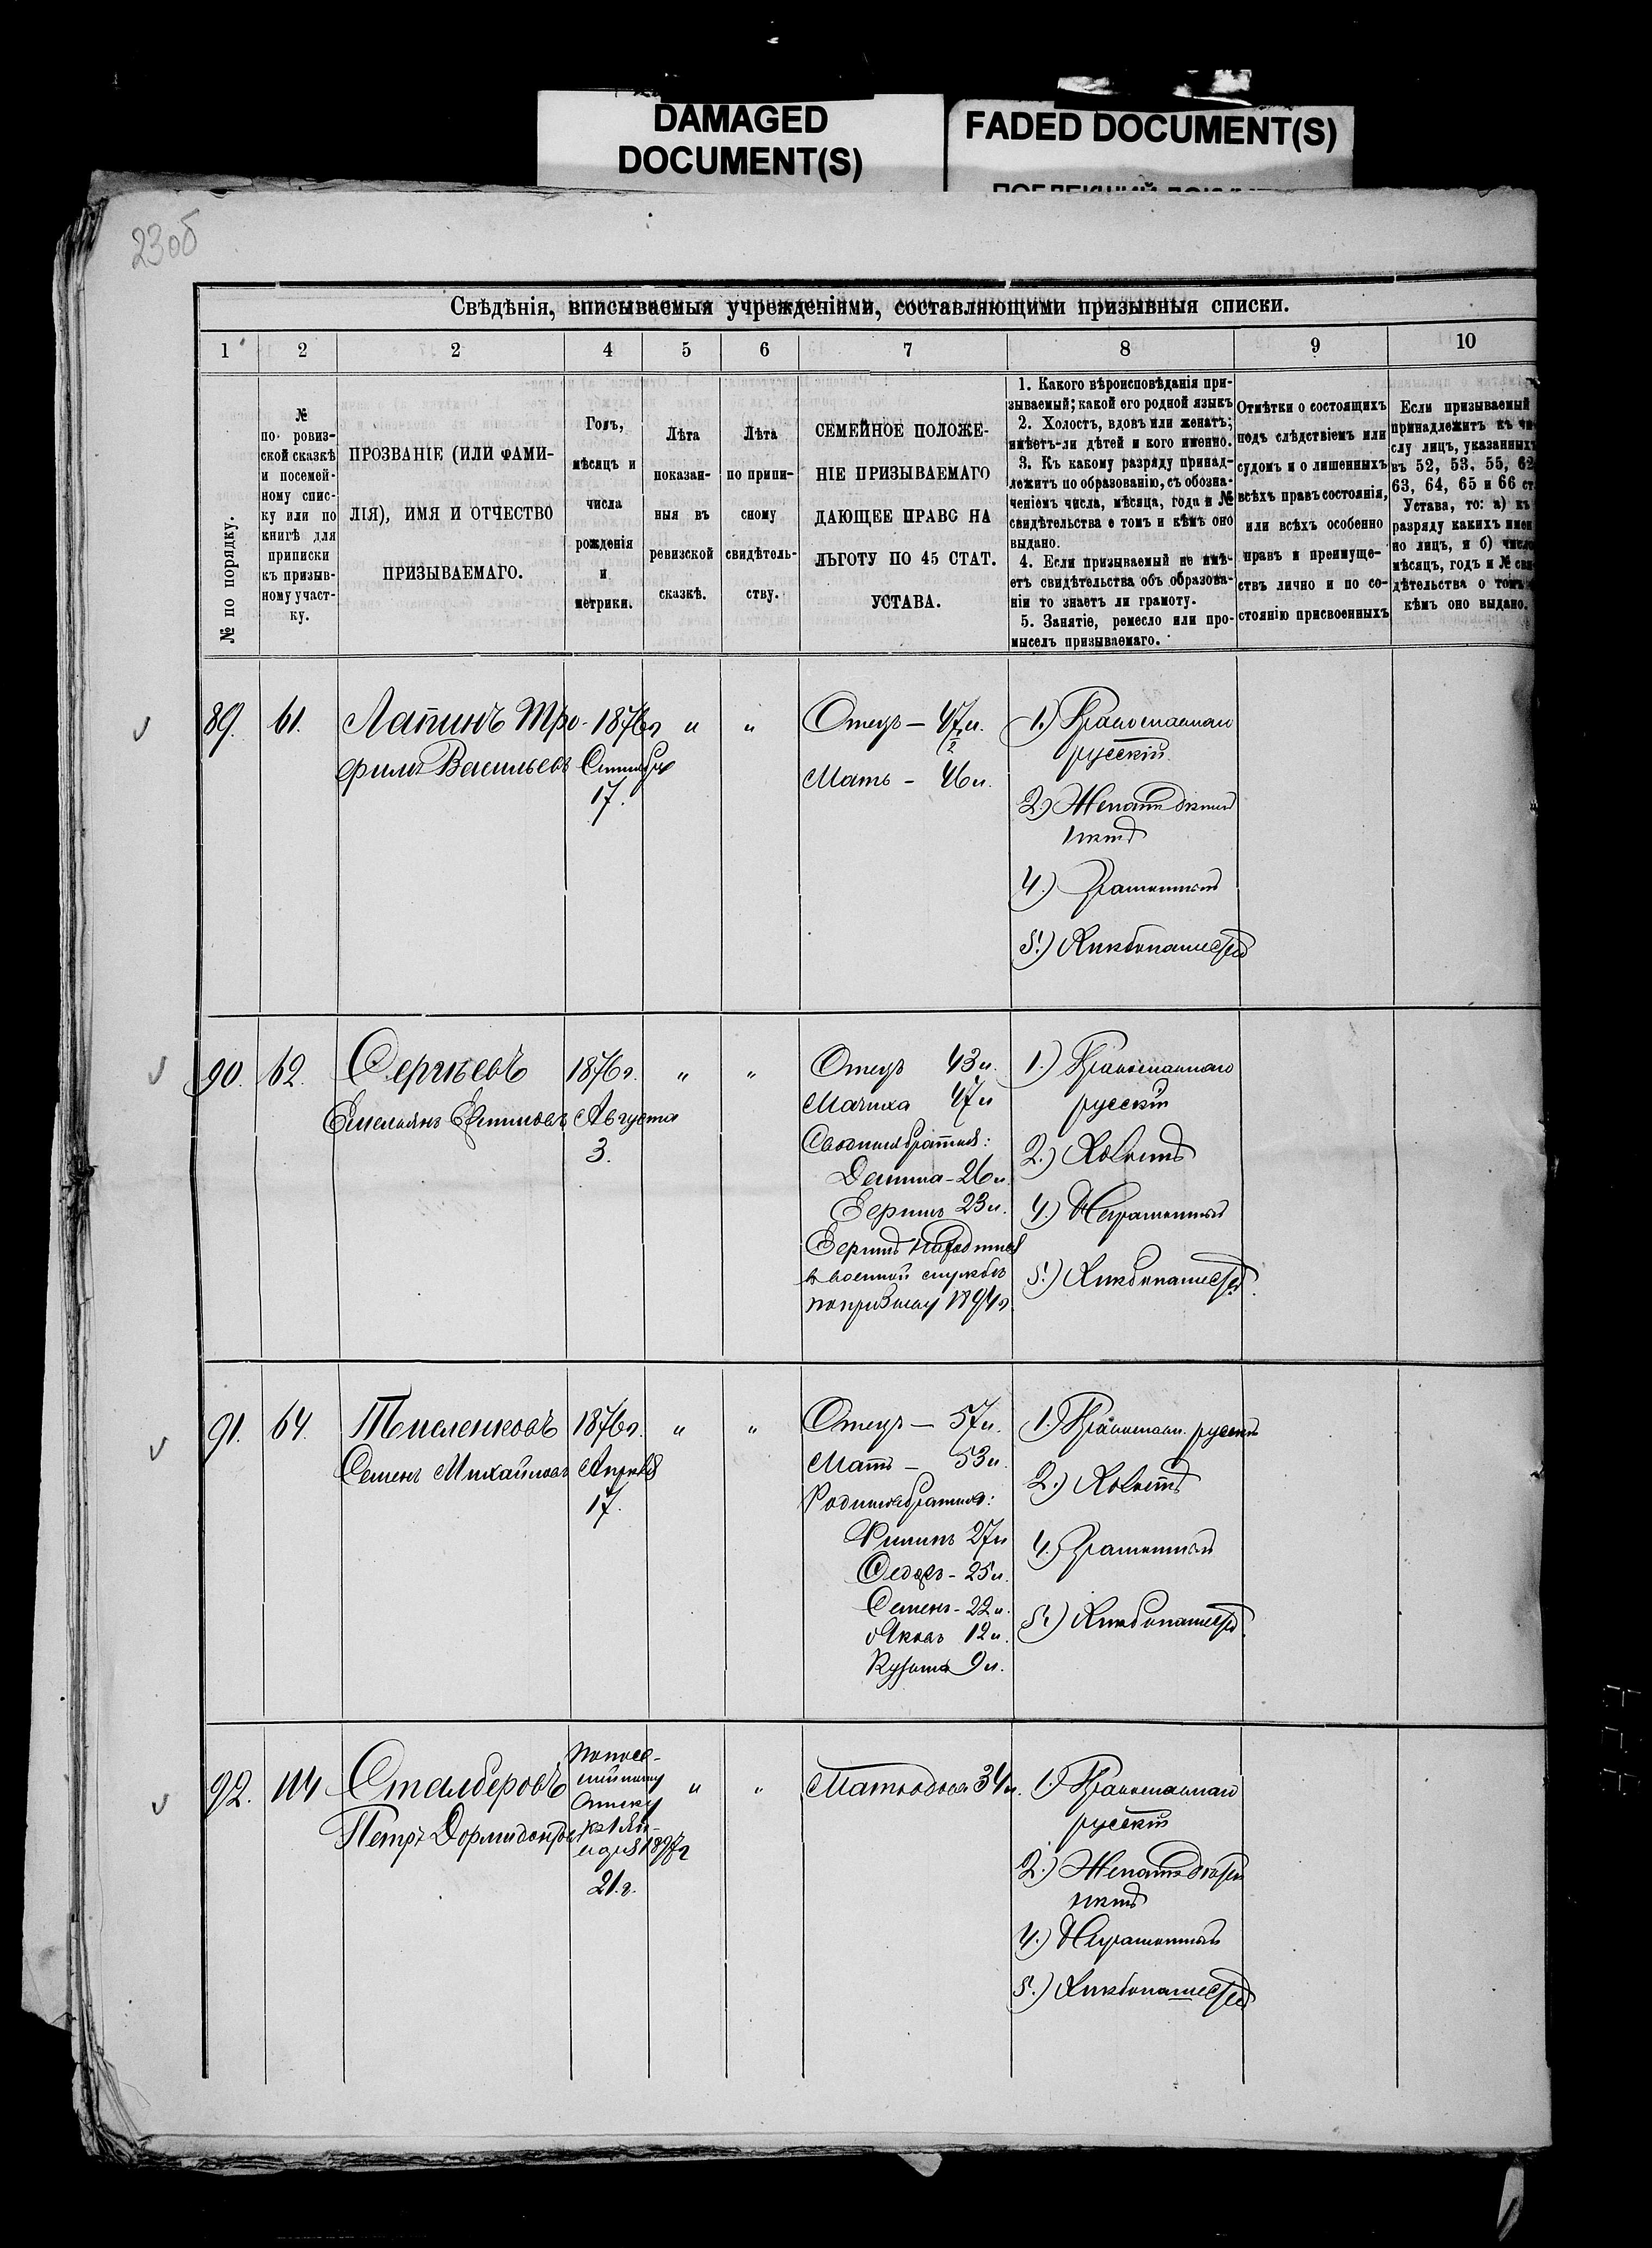 DAMAGED
DOCUMENT(S)
FADED DOCUMENT(S)
23об
Свѣдѣнія, вписываемыя учрежденіями, составляющими призывныя списки.
1 2 2 4 5 6 7 8 9 10
№ по порядку.
№
по ровиз-
ской сказкѣ
и посемей-
ному спис-
ку или по
книгѣ для
приписки
къ призыв-
ному участ-
ку.
ПРОЗВАНІЕ (ИЛИ ФАМИ-
ЛІЯ), ИМЯ И ОТЧЕСТВО
ПРИЗЫВАЕМАГО.
Годъ,
мѣсяцъ и
числа
рожденія
и
метрики.
Лѣта
показан-
ныя въ
ревизской
сказкѣ.
Лѣта
по припи-
сному
свидѣтель-
ству.
СЕМЕЙНОЕ ПОЛОЖЕ-
НІЕ ПРИЗЫВАЕМАГО
ДАЮЩЕЕ ПРАВО НА
ЛЬГОТУ ПО 45 СТАТ.
УСТАВА.
1. Какого вѣроисповѣданія при-
зываемый; какой его родной языкъ
2. Холостъ, вдовъ или женатъ;
имѣетъ-ли дѣтей и кого именно.
3. Къ какому разряду принад-
лежитъ по образованію, съ обозна-
ченіемъ числа, мѣсяца, года и №
свидѣтельства о томъ и кѣмъ оно
выдано.
4. Если призываемый не имѣ-
етъ свидѣтельства объ образова-
ніи то знаетъ ли грамоту.
5. Занятіе, ремесло или про-
мыселъ призываемаго.
Отмѣтки о состоящихъ
подъ слѣдствіемъ или
судомъ и о лишенныхъ
всѣхъ правъ состоянія,
или всѣхъ особенно
правъ и преимуще-
ствъ лично и по со-
стоянію присвоенныхъ
Если призываемый
принадлежитъ къ чи
слу лицъ, указанныхъ
въ 52, 53, 55, 62
63, 64, 65 и 66 ст
Устава, то: а) къ
разряду какихъ имен
но лицъ, и б) число
мѣсяцъ, годъ и № сви
дѣтельства о томъ
кѣмъ оно выдано.
89. 61. Лапинъ Тро-
филъ Васильевъ
1876 г
Сентября
17.
" "
Отецъ — 47 л.
Мать - 46 л.
1.) Православнаго
русскій
2.) Женатъ дѣтей
нѣтъ
4.) Грамотный
5.) Хлѣбопашество
90. 62. Сергѣевъ
Емельянъ
1876 г.
Августа
3.
" "
Отецъ 43 л.
Мачиха 47 л
Сводные братья:
26 л.
23 л.
находится
въ военной службѣ
по призыву 1894 г.
1.) Православнаго
русскій
2.) Холостъ
4.) Неграмотный
5.) Хлѣбопашество
91. 64.
Семенъ Михайловъ
1876 г.
Апрѣля
17.
" "
Отецъ — 57 л.
Мать — 53 л.
Родные братья:
Филипъ 27 л
Федоръ - 25 л.
Семенъ - 22 л.
Яковъ 12 л.
Кузьма 9 л.
1.) Православн. русскій
2.) Холостъ
4.) Грамотный
5.) Хлѣбопашество
92. 114 Сталберовъ
Петръ Дормидонтовъ
по посе-
мейному
списку
къ 1 Ян-
варя 1897 г
21 г.
" "
Мать вдова 34 л.
1.) Православнаго
русскій
2.) Женатъ дѣтей
нѣтъ
4.) Неграмотный
5.) Хлѣбопашество